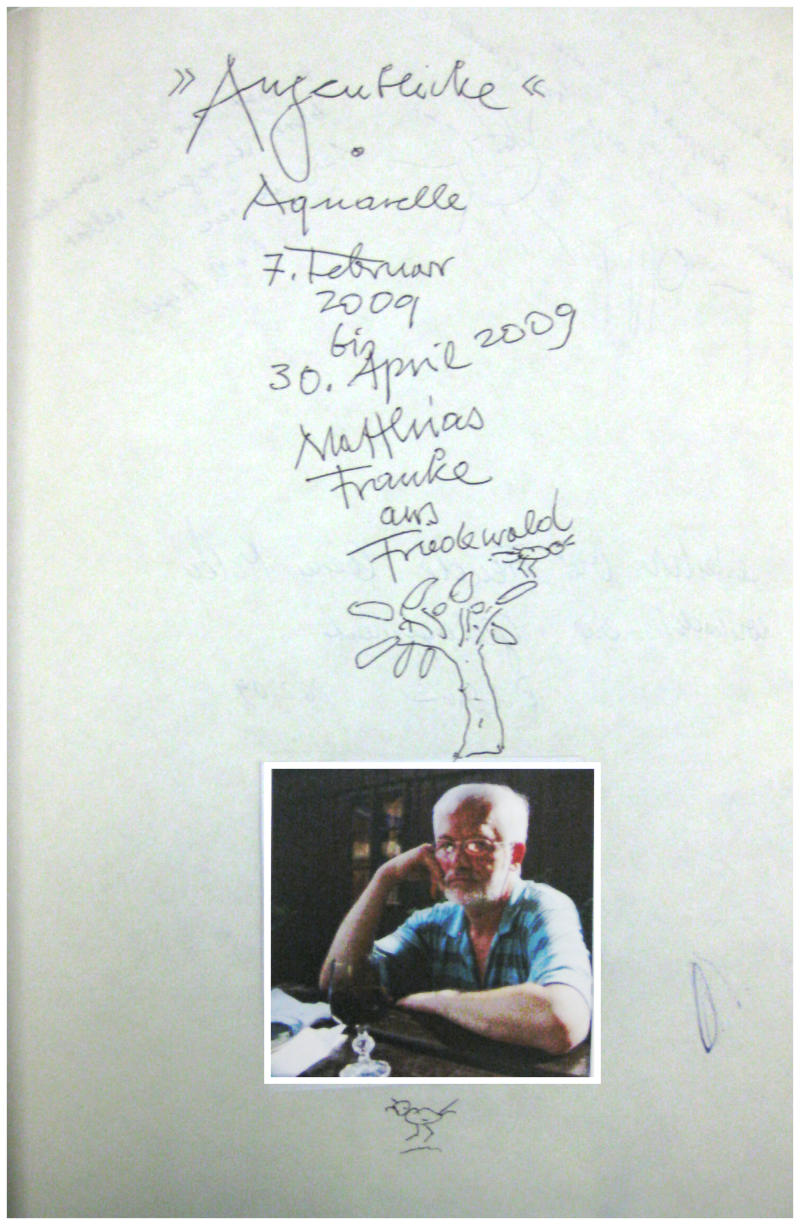 »Augenblicke«
Aquarelle
7. Februar
2009
bis
30. April 2009
Matthias
Franke
aus
Friedewald